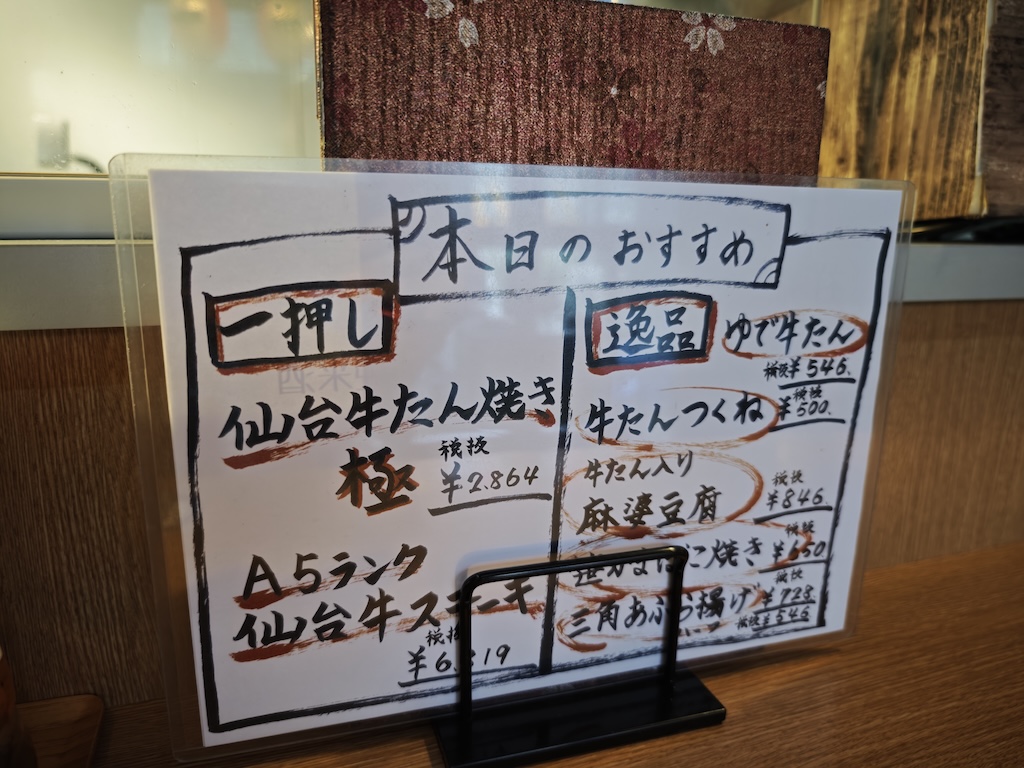 本日のおすすめ
一押し
仙台牛たん焼き
極
税抜
¥2.864
A5ランク
仙台牛ステーキ
税抜
¥6.819
逸品
ゆで牛たん
税抜¥546.
牛たんつくね
税抜
¥500.
牛たん入り
麻婆豆腐
税抜
¥846.
笹かまぼこ焼き
税抜
¥650
三角あぶら揚げ
税抜
¥728.
税抜¥546.